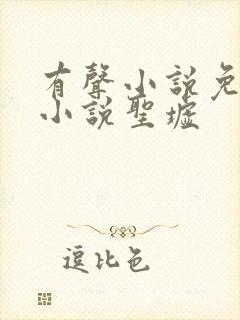 有聲小說免
小說聖墟
逗比色